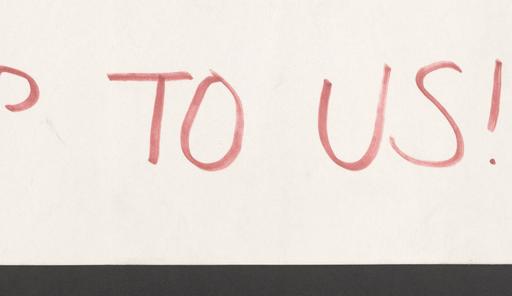 TO US!